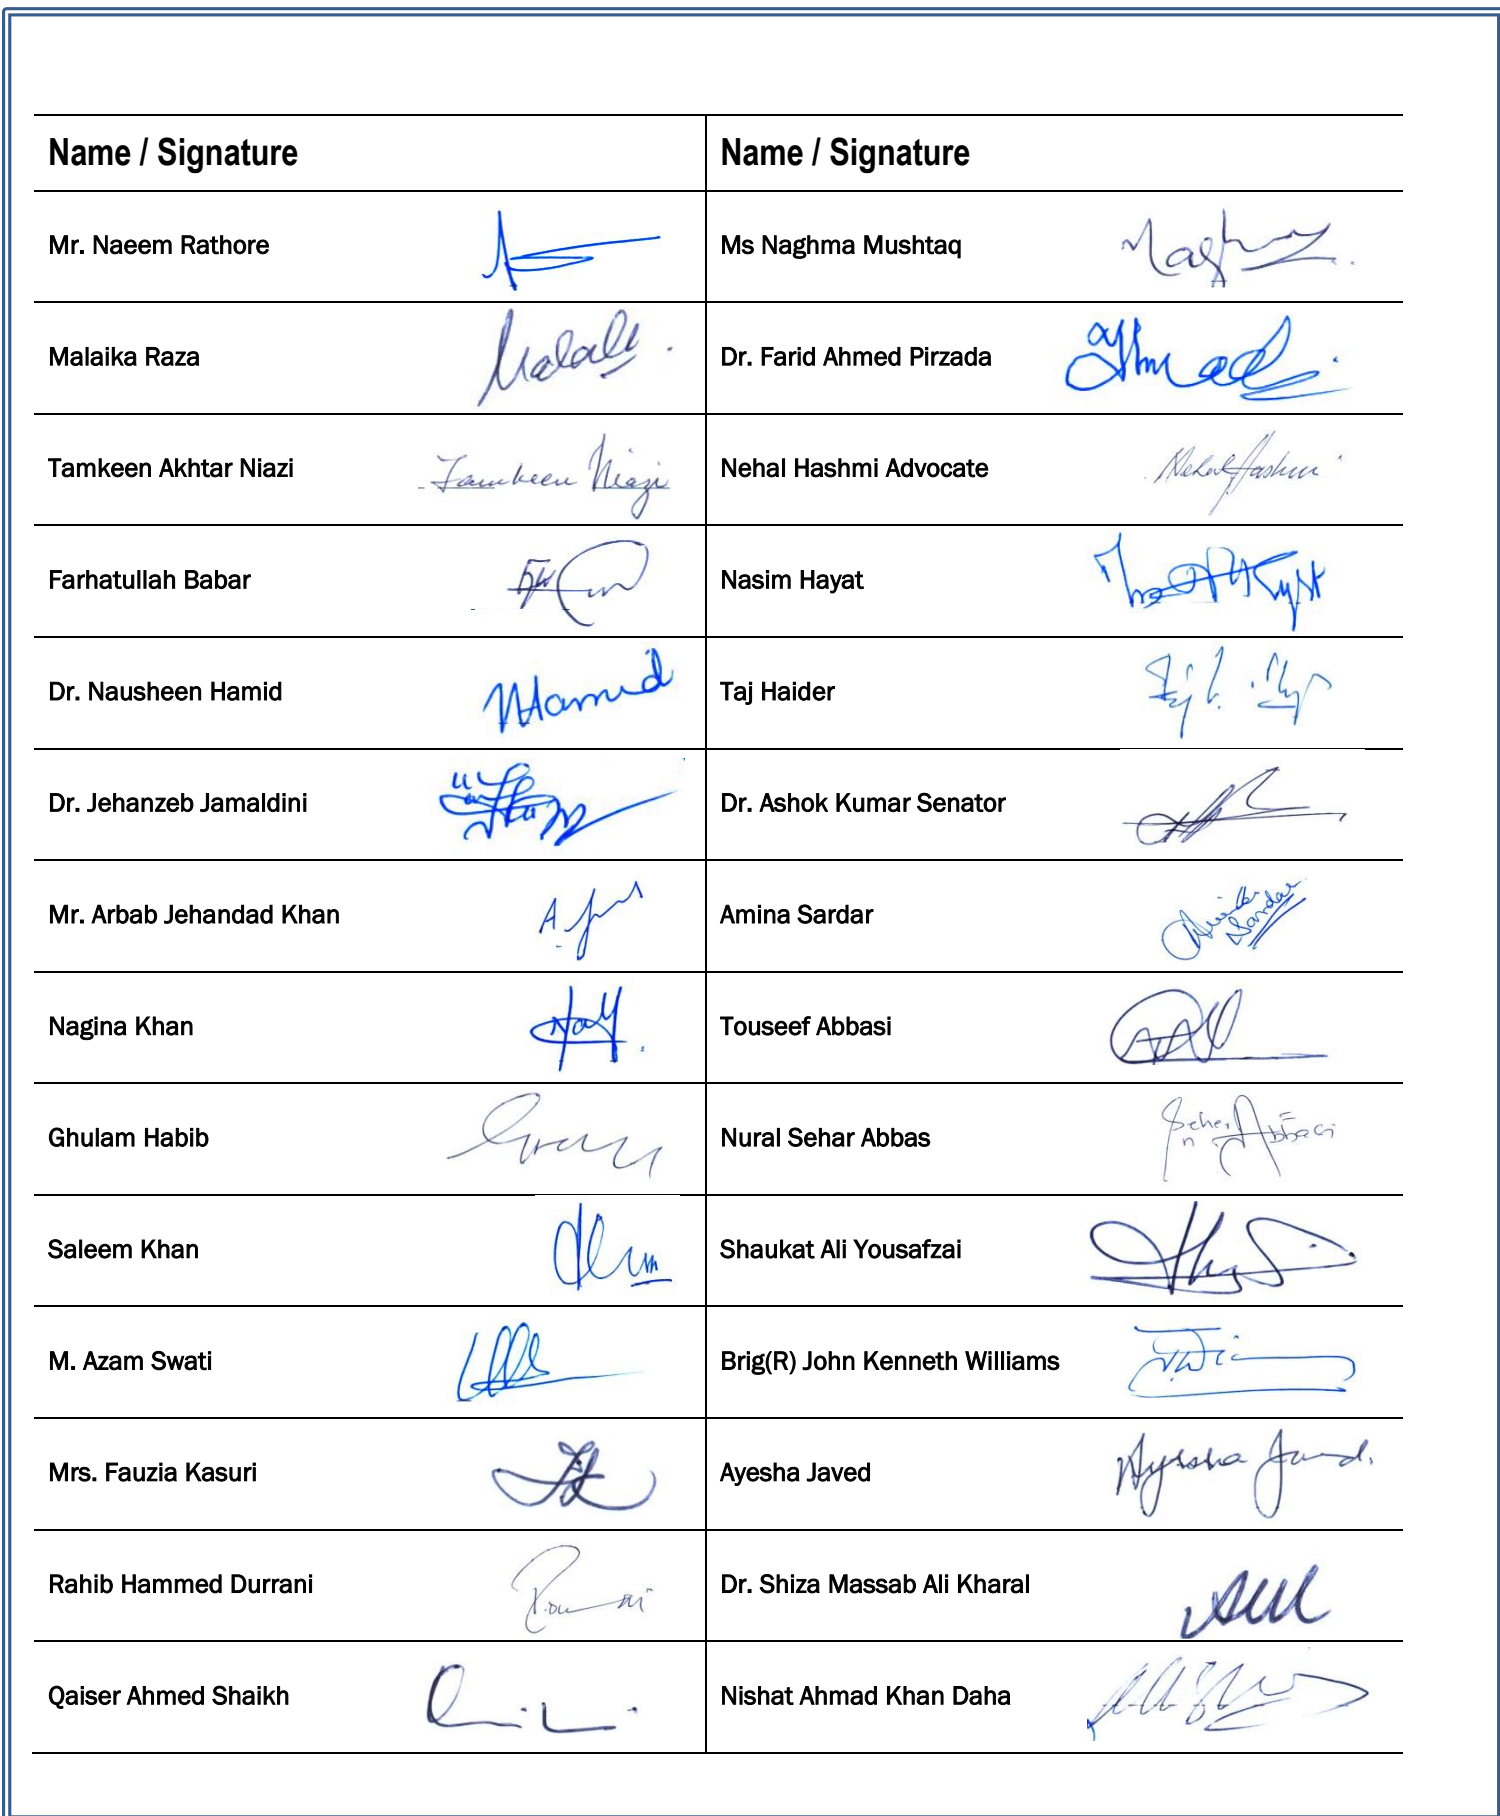 Name / Signature Name / Signature
Mr. Naeem Rathore Ms Naghma Mushtaq Naghma
Malaika Raza Dr. Farid Ahmed Pirzada
Tamkeen Akhtar Niazi Tamkeen Niazi Nehal Hashmi Advocate Nehal Hashmi
Farhatullah Babar Nasim Hayat
Dr. Nausheen Hamid NHamid Taj Haider
Dr. Jehanzeb Jamaldini Dr. Ashok Kumar Senator
Mr. Arbab Jehandad Khan Amina Sardar Amina Sardar
Nagina Khan Touseef Abbasi
Ghulam Habib Nural Sehar Abbas Seher Abbasi
Saleem Khan Shaukat Ali Yousafzai
M. Azam Swati Brig(R) John Kenneth Williams
Mrs. Fauzia Kasuri Ayesha Javed Ayesha Javed
Rahib Hammed Durrani Dr. Shiza Massab Ali Kharal
Qaiser Ahmed Shaikh Nishat Ahmad Khan Daha